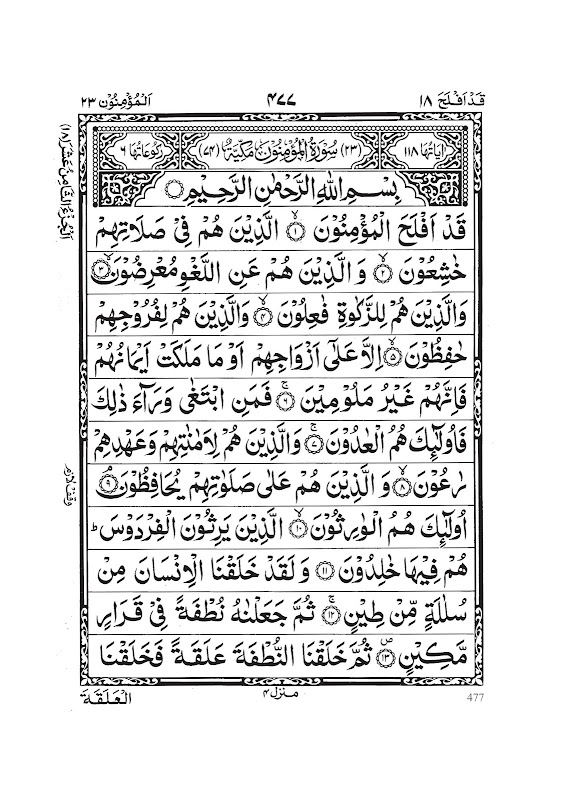 قَدْ اَفْلَحَ ١٨
٤٧٧
اَلْمُؤْمِنُوْن ٢٣
اٰيَاتُهَا ١١٨
(٢٣) سُوْرَةُ الْمُؤْمِنُوْنَ مَكِّيَّةٌ (٧٤)
رُكُوْعَاتُهَا ٦
بِسْمِ اللّٰهِ الرَّحْمٰنِ الرَّحِيْمِ
قَدْ اَفْلَحَ الْمُؤْمِنُوْنَ ۙ﴿١﴾ الَّذِيْنَ هُمْ فِيْ صَلَاتِهِمْ
خٰشِعُوْنَ ۙ﴿٢﴾ وَالَّذِيْنَ هُمْ عَنِ اللَّغْوِ مُعْرِضُوْنَ ۙ﴿٣﴾
وَالَّذِيْنَ هُمْ لِلزَّكٰوةِ فٰعِلُوْنَ ۙ﴿٤﴾ وَالَّذِيْنَ هُمْ لِفُرُوْجِهِمْ
حٰفِظُوْنَ ۙ﴿٥﴾ اِلَّا عَلٰٓى اَزْوَاجِهِمْ اَوْ مَا مَلَكَتْ اَيْمَانُهُمْ
فَاِنَّهُمْ غَيْرُ مَلُوْمِيْنَ ۚ﴿٦﴾ فَمَنِ ابْتَغٰى وَرَآءَ ذٰلِكَ
فَاُولٰٓئِكَ هُمُ الْعٰدُوْنَ ۚ﴿٧﴾ وَالَّذِيْنَ هُمْ لِاَمٰنٰتِهِمْ وَعَهْدِهِمْ
رٰعُوْنَ ۙ﴿٨﴾ وَالَّذِيْنَ هُمْ عَلٰى صَلَوٰتِهِمْ يُحَافِظُوْنَ ۘ﴿٩﴾
اُولٰٓئِكَ هُمُ الْوٰرِثُوْنَ ۙ﴿١٠﴾ الَّذِيْنَ يَرِثُوْنَ الْفِرْدَوْسَ ؕ
هُمْ فِيْهَا خٰلِدُوْنَ ﴿١١﴾ وَلَقَدْ خَلَقْنَا الْاِنْسَانَ مِنْ
سُلٰلَةٍ مِّنْ طِيْنٍ ۚ﴿١٢﴾ ثُمَّ جَعَلْنٰهُ نُطْفَةً فِيْ قَرَارٍ
مَّكِيْنٍ ۪﴿١٣﴾ ثُمَّ خَلَقْنَا النُّطْفَةَ عَلَقَةً فَخَلَقْنَا
الْعَلَقَةَ
منزل ٤
477
اَلْجُزْءُ الثَّامِنُ عَشَرَ (١٨)
وقف لازم